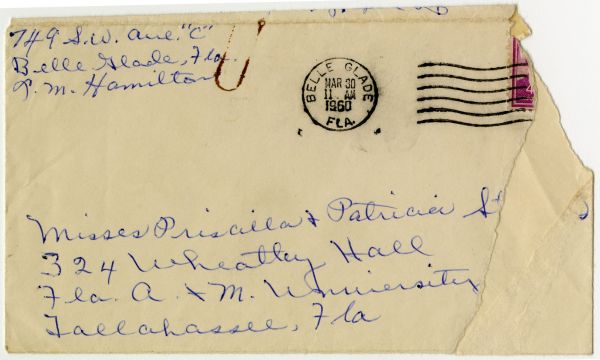 749 S.W. Ave. "C"
Belle Glade, Fla.
L. M. Hamilton
BELLE GLADE
MAR 30
11 AM
1960
FLA.
4
Misses Priscilla & Patricia St
324 Wheatley Hall
Fla. A. & M. University
Tallahassee, Fla